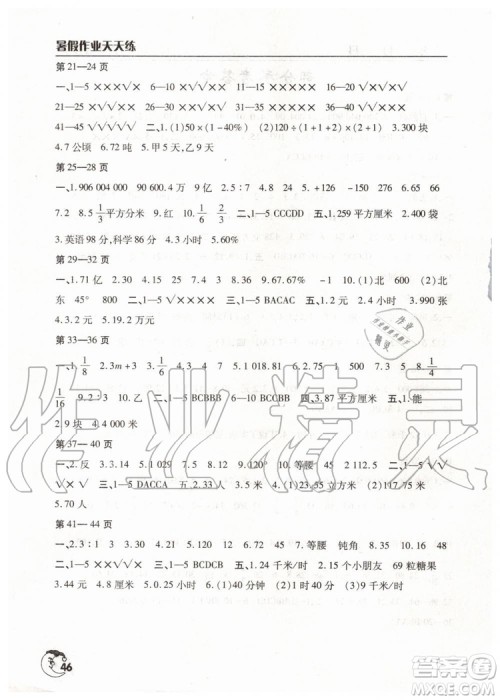 暑假作业天天练
第21—24页
一、1—5 ×××√× 6—10 ×××√× 11—15 ××××× 16—20 ××××√
21—25 ×××√× 26—30 ××××× 31—35 ××××× 36—40 ×××××
41—45 √√××√ 二、1.(1)50×(1-40%) (2)120÷(1+50%) 3.300块
4.7公顷 6.72吨 5.甲5天,乙9天
第25—28页
一、1.906 004 000 90 600.4万 9亿 2.3∶5 3.6 4.+50 -150 5.276 6.65 66
7.2 8.1/3平方分米 9.红 10.1/6 1/6 二、1—5 CCCDD 五、1.259平方厘米 2.400袋
3.英语98分,科学86分 4.3小时 5.60%
第29—32页
一、1.71亿 2.30 3.15 4.24 5.75 6.3 7.4∶1 8.1 9.-10 10.(1)北 600 (2)北
东 45° 800 二、1—5 ×√×√√ 三、1—5 BACAC 五、1.42 2.4小时 3.990张
4.3.2元 5.19.2万元
第33—36页
一、1.1/8 2.3m+3 3.47 4.9 5.1 018.81 6.75 7.8∶1 8.1/4
1/16 9.2∶3 10.2 三、1—5 BCBBB 6—10 CCBBB 四、3.87平方厘米 五、1.能
2.9块 4.4 000元
第37—40页
一、2.反 3.3.14 5.1 029 7.5.9 8.12 9.120 10.等腰 48 二、1—5 √√×√√
√×√ 三、1—5 DACCA 五、2.33人 3.2米 4.(1)23.55平方米 (2)117.75米
5.70人
第41—44页
一、2.3∶1 3.30 4.21 5.120 12 6.-5 7.91 8.等腰 钝角 9.35 10.16 48
二、1—5 ××√√√ 三、1—5 BCDCB 五、1.24千米/时 2.15个小朋友 69粒糖果
3.44元 4.8厘米 5.9小时 6.(1)40分钟 (2)1千米/时
46
作业精灵
作业
精灵
答案圈
MXQE.COM